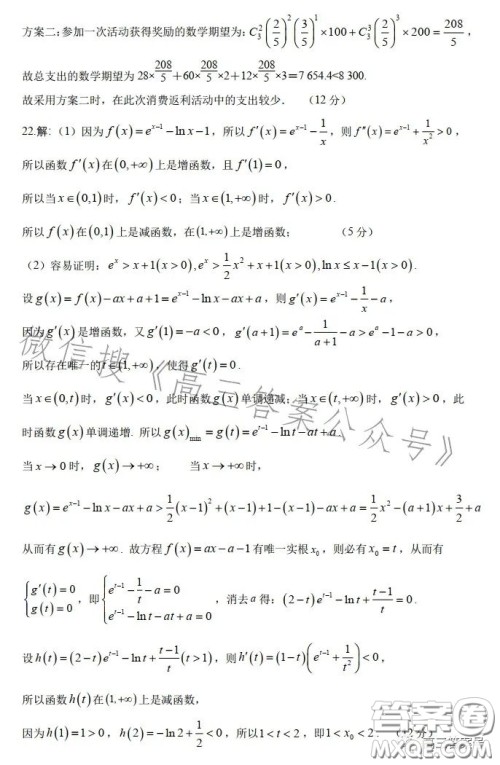 方案二：参加一次活动获得奖励的数学期望为：C₃²(2/5)²(3/5)¹×100+C₃³(2/5)³×200=208/5，
故总支出的数学期望为 28×208/5+60×208/5×2+12×208/5×3=7 654.4<8 300.
故采用方案二时，在此次消费返利活动中的支出较少． （12 分）
22.解：（1）因为 f(x)=e^{x-1}-ln x-1，所以 f′(x)=e^{x-1}-1/x，则 f″(x)=e^{x-1}+1/x²>0，
所以函数 f′(x) 在(0,+∞) 上是增函数，且 f′(1)=0，
所以当 x∈(0,1) 时，f′(x)<0；当 x∈(1,+∞) 时，f′(x)>0．
所以 f(x) 在(0,1) 上是减函数，在(1,+∞) 上是增函数； （5 分）
（2）容易证明：e^x>x+1(x>0),e^x>1/2x²+x+1(x>0),ln x≤x-1(x>0)．
设 g(x)=f(x)-ax+a+1=e^{x-1}-ln x-ax+a，则 g′(x)=e^{x-1}-1/x-a，
因为 g′(x) 是增函数，又 g′(1)=-a<0，g′(a+1)=e^a-1/(a+1)-a>e^a-1-a>0，
所以存在唯一的 t∈(1,+∞)，使得 g′(t)=0．
当 x∈(0,t) 时，g′(x)<0，此时函数 g(x) 单调递减；当 x∈(t,+∞) 时，g′(x)>0，此
时函数 g(x) 单调递增．所以 g(x)min=g(t)=e^{t-1}-ln t-at+a．
当 x→0 时，g(x)→+∞； 当 x→+∞ 时，
g(x)=e^{x-1}-ln x-ax+a>1/2(x-1)²+(x-1)+1-(x-1)-ax+a=1/2x²-(a+1)x+3/2+a
从而有 g(x)→+∞．故方程 f(x)=ax-a-1 有唯一实根 x₀，则必有 x₀=t，从而有
{g′(t)=0 g(t)=0，即{e^{t-1}-1/t-a=0 e^{t-1}-ln t-at+a=0，消去 a 得：(2-t)e^{t-1}-ln t+(t-1)/t=0．
设 h(t)=(2-t)e^{t-1}-ln t+(t-1)/t(t>1)，则 h′(t)=(1-t)(e^{t-1}+1/t²)<0，
所以函数 h(t) 在(1,+∞) 上是减函数，
因为 h(1)=1>0，h(2)=-ln2+1/2<0，所以1<t<2，即1<x₀<2． （12 分）
微信搜《高三答案公众号》
答案圈
MXQE.COM